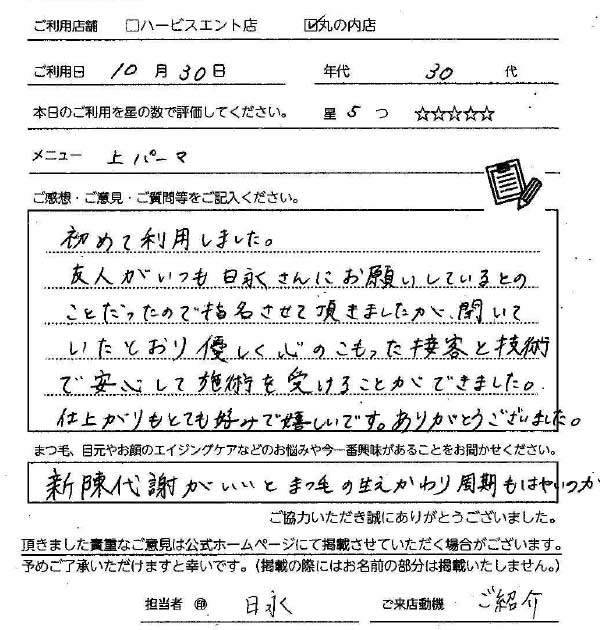 ご利用店舗 □ハービスエント店 ☑丸の内店
ご利用日 10 月 30 日 年代 30 代
本日のご利用を星の数で評価してください。 星 5 つ ☆☆☆☆☆
メニュー 上パーマ
ご感想・ご意見・ご質問等をご記入ください。
初めて利用しました。
友人がいつも日永さんにお願いしているとの
ことだったので指名させて頂きましたが、聞いて
いたとおり優しく心のこもった接客と技術
で安心して施術を受けることができました。
仕上がりもとても好みで嬉しいです。ありがとうございました。
まつ毛、目元やお顔のエイジングケアなどのお悩みや今一番興味があることをお聞かせください。
新陳代謝がいいとまつ毛の生えかわり周期もはやいのか
ご協力いただき誠にありがとうございました。
頂きました貴重なご意見は公式ホームページにて掲載させていただく場合がございます。
予めご了承いただけますと幸いです。（掲載の際にはお名前の部分は掲載いたしません。）
担当者 ㊞ 日永 ご来店動機 ご紹介